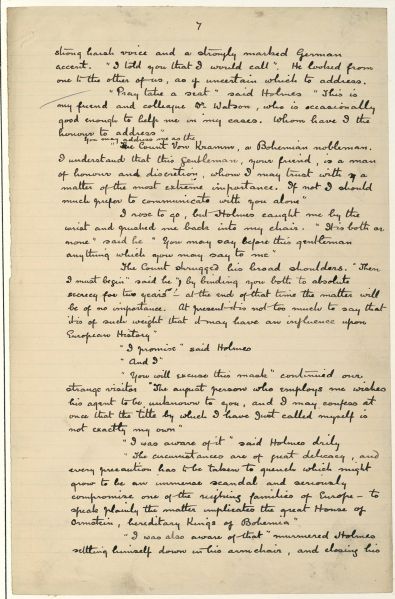 7
strong harsh voice and a strongly marked German
accent. "I told you that I would call". He looked from
one to the other of us, as if uncertain which to address.
"Pray take a seat" said Holmes "This is
my friend and colleague Dr. Watson, who is occasionally
good enough to help me in my cases. Whom have I the
honour to address"
You may address me as the
"The Count Von Kramm, a Bohemian nobleman.
I understand that this gentleman, your friend, is a man
of honour and discretion, whom I may trust with a
matter of the most extreme importance. If not I should
much prefer to communicate with you alone"
I rose to go, but Holmes caught me by the
wrist and pushed me back into my chair. "It is both or
none" said he "You may say before this gentleman
anything which you may say to me"
The Count shrugged his broad shoulders. "Then
I must begin" said he "by binding you both to absolute
secrecy for two years – at the end of that time the matter will
be of no importance. At present it is not too much to say that
it is of such weight that it may have an influence upon
European History"
"I promise" said Holmes
"And I"
"You will excuse this mask" continued our
strange visitor "The august person who employs me wishes
his agent to be unknown to you, and I may confess at
once that the title by which I have just called myself is
not exactly my own"
"I was aware of it" said Holmes drily
"The circumstances are of great delicacy, and
every precaution has to be taken to quench which might
grow to be an immense scandal and seriously
compromise one of the reigning families of Europe – to
speak plainly the matter implicates the great House of
Ormstein, hereditary Kings of Bohemia"
"I was also aware of that" murmured Holmes
settling himself down in his armchair, and closing his